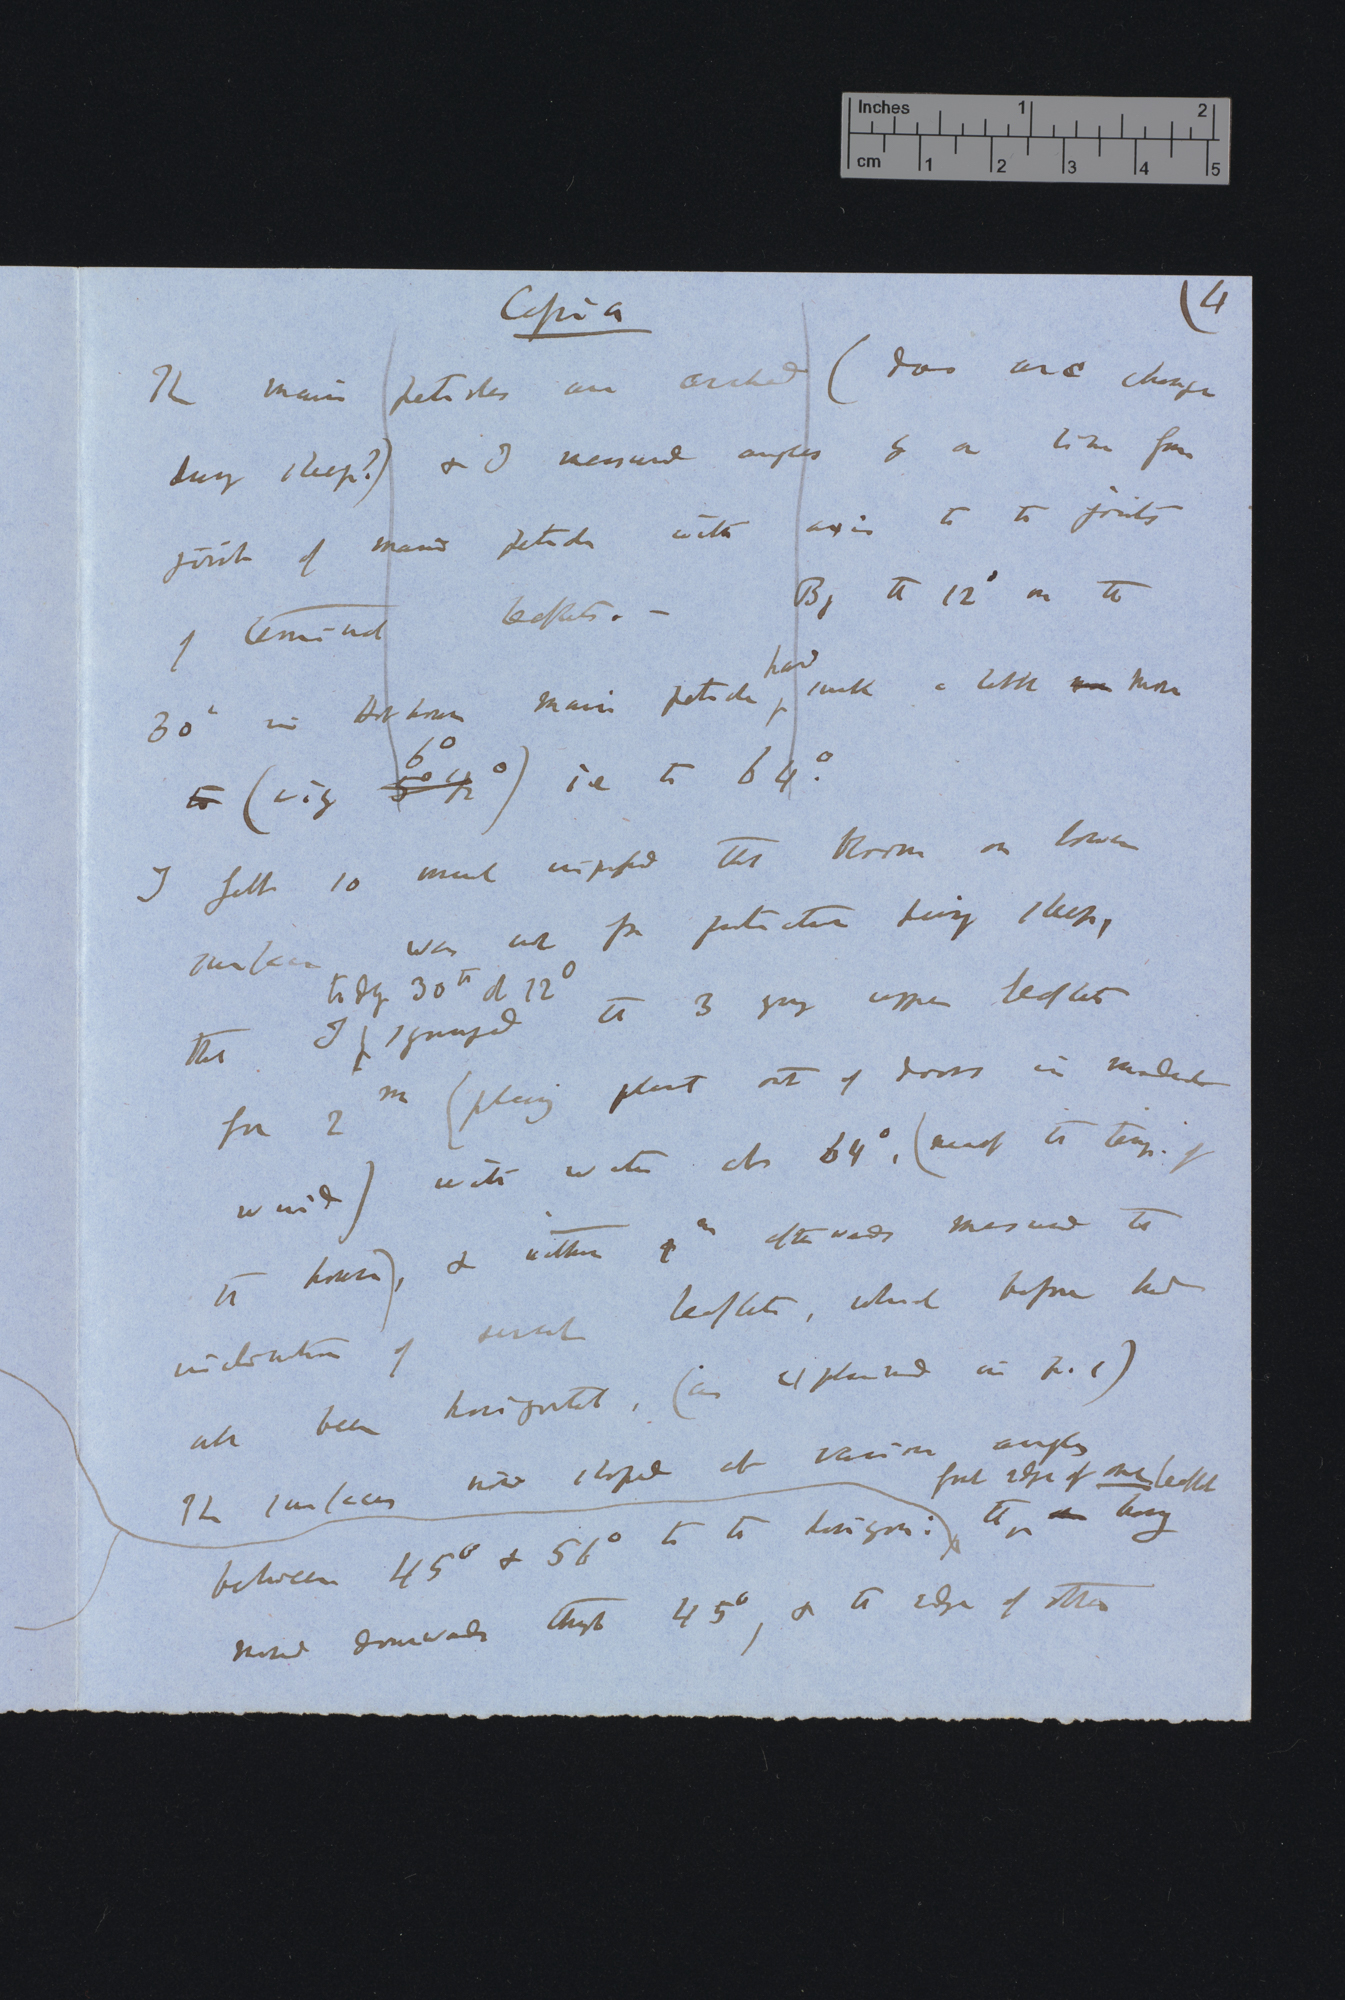 Inches 1 2
cm 1 2 3 4 5
Cassia (4
The main petioles are arched (does arc change
during sleep?) & I measured angles by a line from
joint of main petiole with axis to the joints
of terminal leaflets. — By the 12° on the
30th in Hot-house main petiole had sunk a little more
to (viz 5° or 12° 6°) ie to 64°.
I felt so much that bloom on lower
surface was not for protection during sleep,
that I to day 30th at 12° syringed the 3 young upper leaflets
for 2m (placing plant out of doors in moderate
wind) with water at 64°, (nearly the temp. of
the house), & within afterwards measured the
inclination of several leaflets, which before had
all been horizontal, (as explained in p. 1)
The surfaces now sloped at various angles
between 45° & 56° to the horizon: the front edge of one leaflet having
moved downwards through 45°, & the edge of other